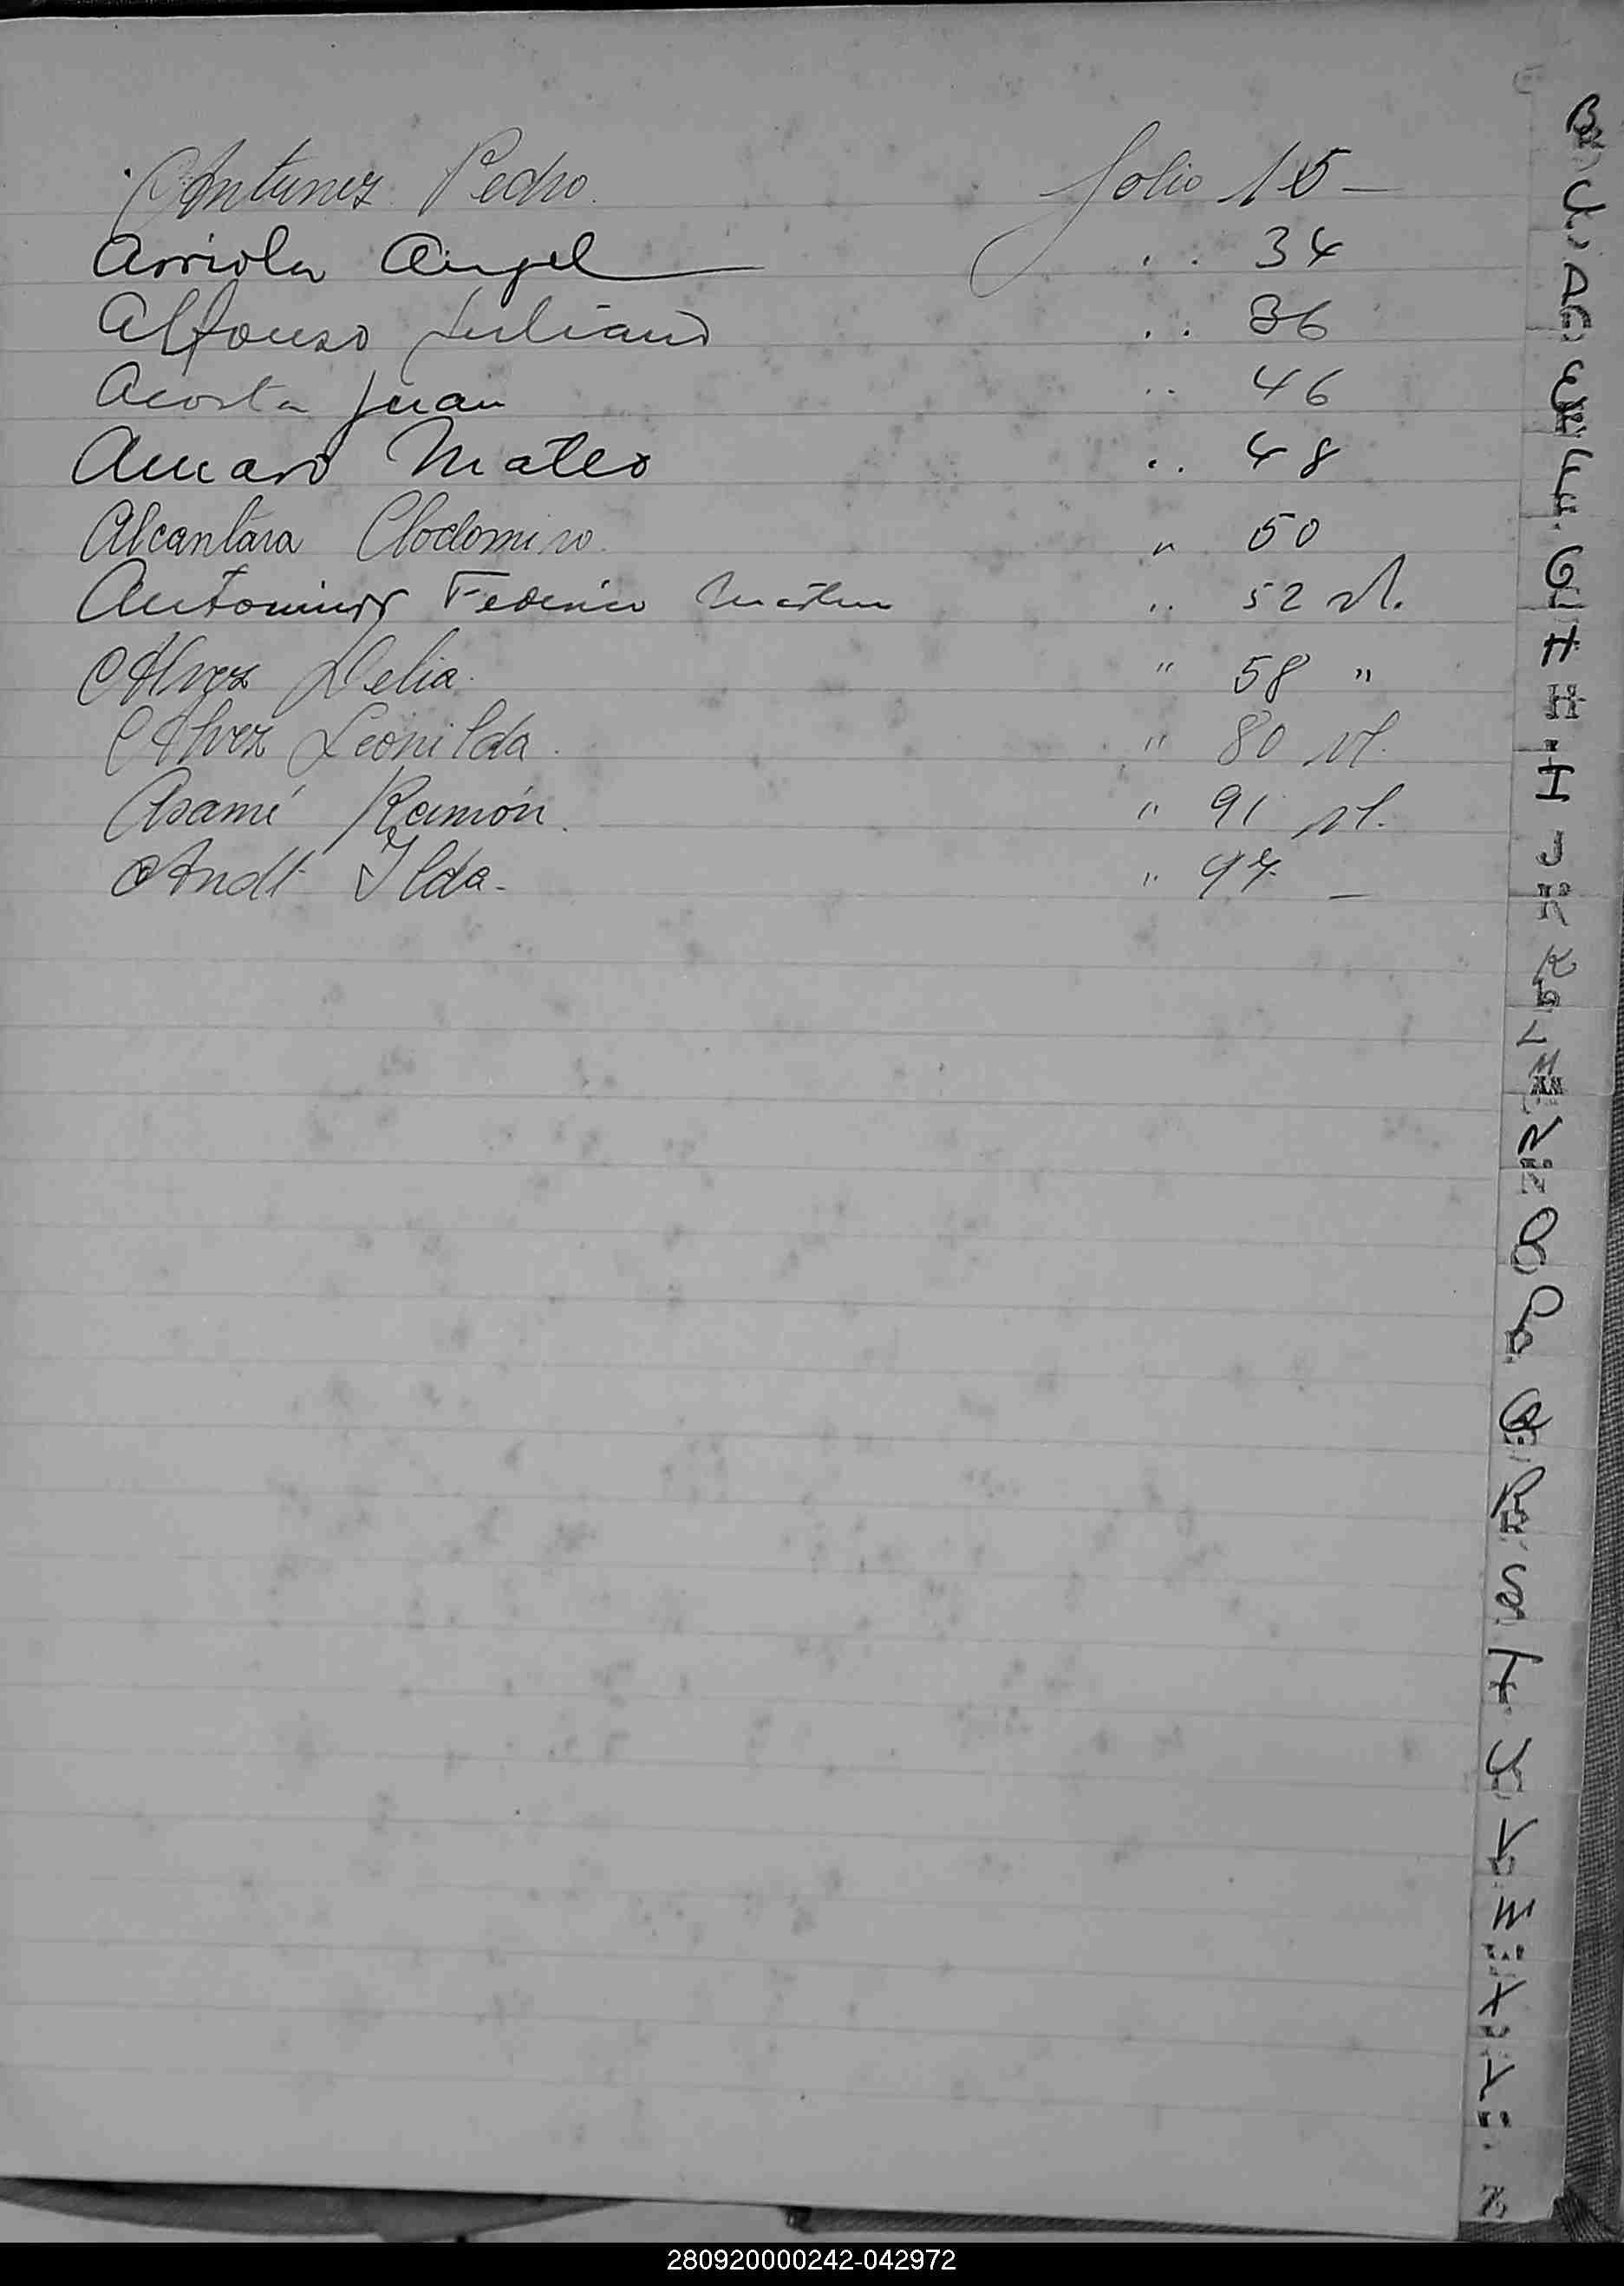 Antunez Pedro. folio 15 -
Arriola Angel .. 34
Alfonso Juliano .. 36
Acosta Juan .. 46
Amaro Mateo .. 48
Alcantara Clodomiro. " 50
Federico .. 52 vl.
Alvez Delia. " 58 "
Alvez Leonilda. " 80 vl.
Asamé Ramón. " 91 vl.
Andt Ilda - " 97 -
B
C
D
E
F
G
H
I
J
K
L
M
N
O
P
Q
R
S
T
U
V
W
X
Y
Z
280920000242-042972